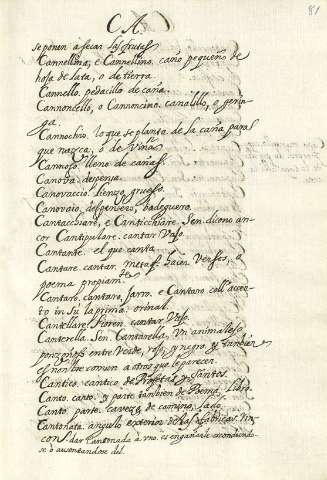 81
CA.
se ponen a secar las frutas
Cannellina, e Cannellino. caño pequeño de
hoja de lata, o de tierra.
Cannello. pedacillo de caña.
Cannoncello, o Cannoncino. canalillo, o gerin-
ga.
Cannochio. lo que se planta de la caña para
que nazca, o de viña.
Cannoso. lleno de cañas.
Canova. despensa.
Canovaccio. Lienzo grueso.
Canovaio. despensero, bodeguero.
Cantacchiare, e Canticchiare. Sen. dicono an-
cor Cantipulare. cantar Vajo.
Cantante. el que canta.
Cantare. cantar. metaf. hacer Versos, o
poema. propiam.te
Cantaro. cantaro, Jarro. e Cantaro coll' accen-
to in su la prima. orinal.
Cantellare. Fioren. cantar Vajo.
Canterella. Sen. Cantarella. Un animalejo
ponzoñoso entre Verde, y negro. y tambien
el nombre comen a otros que lo parecen.
Cantico. cantico de Profetas y Santos.
Canto. canto. y parte tambien de Poema, Libro.
Canto. parte. caveza de camino. Lado.
Cantonata. angulo exterior de las fabricas. Rin-
con. dar Cantonada à uno. es engañarle escondiendo-
se o ausentandose del.